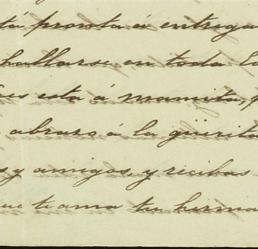 tá pronta á entrega
hallarse en toda la
es esta á mamita,
abrazo á la güerita
s y amigos, y recibas
que te ama tu herma